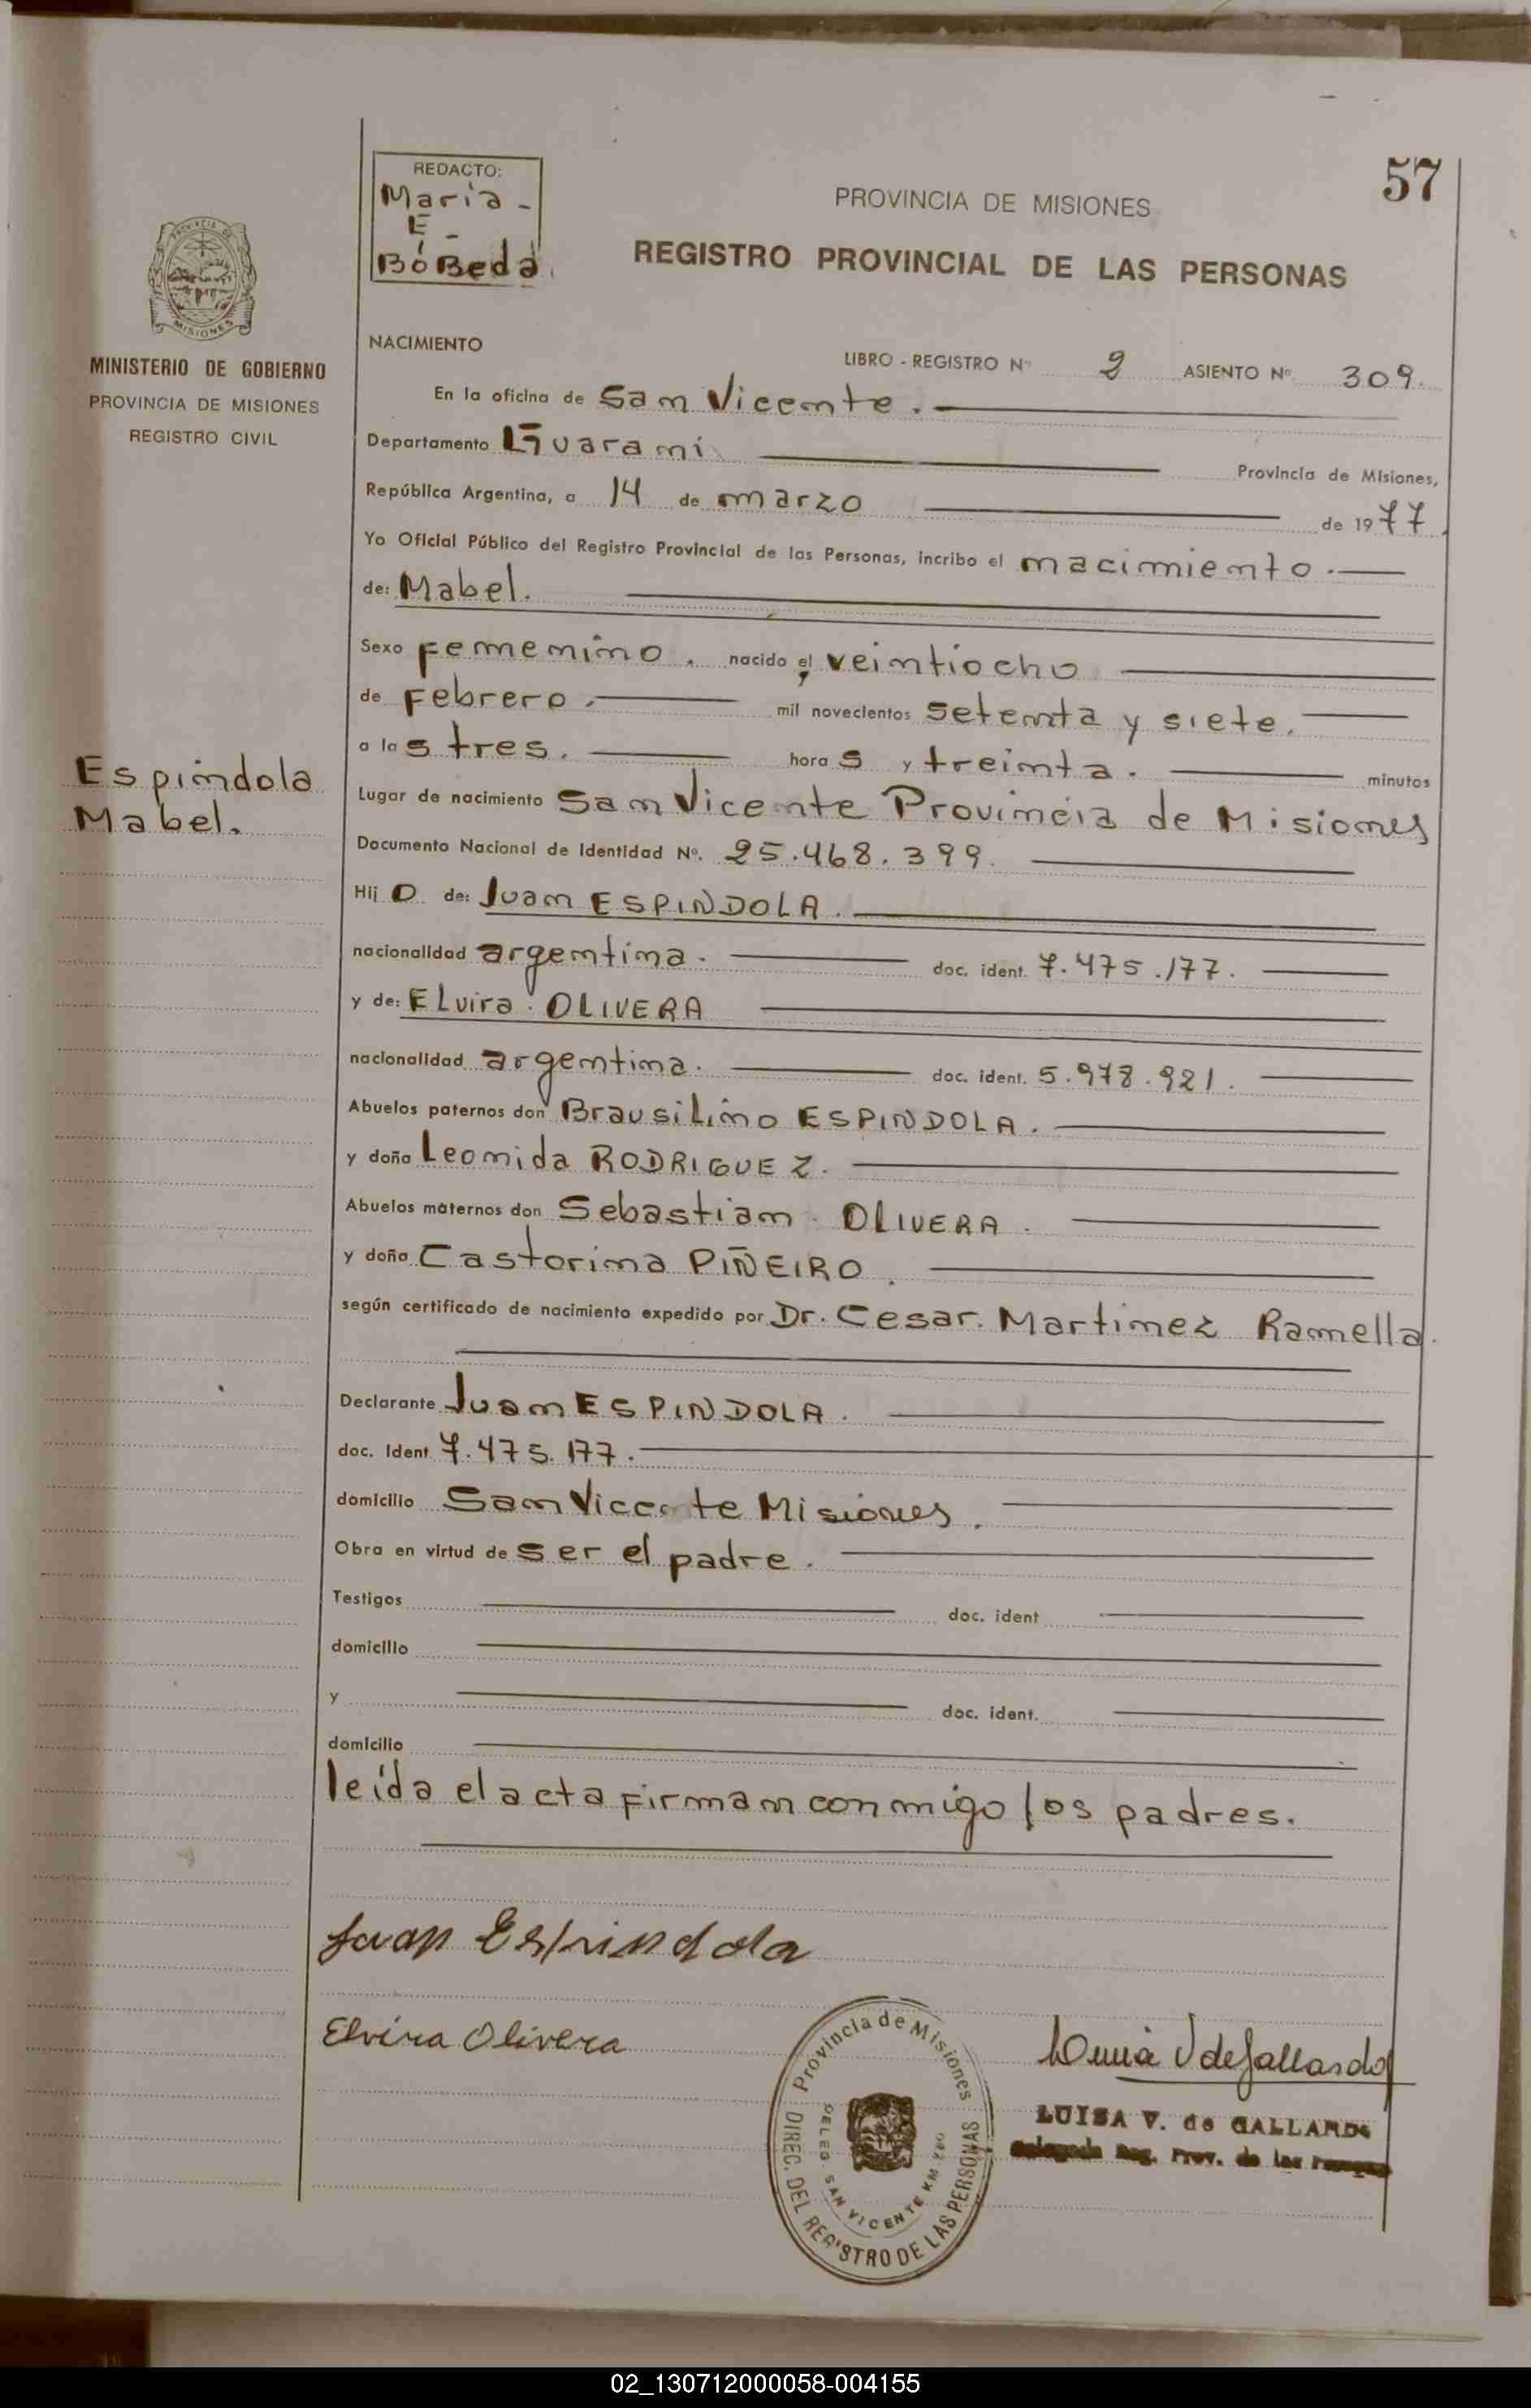 57
REDACTO:
Maria -
E -
BóBeda.
PROVINCIA DE MISIONES
REGISTRO PROVINCIAL DE LAS PERSONAS
PROVINCIA DE
MISIONES
MINISTERIO DE GOBIERNO
PROVINCIA DE MISIONES
REGISTRO CIVIL
NACIMIENTO
LIBRO - REGISTRO Nº 2 ASIENTO Nº 309.
En la oficina de San Vicente.
Departamento Guarani
Provincia de Misiones,
República Argentina, a 14 de marzo de 1977.
Yo Oficial Público del Registro Provincial de las Personas, incribo el nacimiento.
de: Mabel.
Sexo Femenino. nacido el veintiocho
de Febrero. mil novecientos setenta y siete.
a las tres. horas y treinta. minutos
Espíndola
Mabel.
Lugar de nacimiento San Vicente Provincia de Misiones
Documento Nacional de Identidad Nº. 25.468.399.
Hij O de: Juan ESPINDOLA.
nacionalidad argentina. doc. ident. 7.475.177.
y de: Elvira OLIVERA
nacionalidad argentina. doc. ident. 5.978.921.
Abuelos paternos don Brausilino ESPINDOLA.
y doña Leonida RODRIGUEZ.
Abuelos maternos don Sebastian OLIVERA.
y doña Castorina PIÑEIRO.
según certificado de nacimiento expedido por Dr. Cesar. Martinez Ramella.
Declarante Juan ESPINDOLA.
doc. Ident 7.475.177.
domicilio San Vicente Misiones.
Obra en virtud de ser el padre.
Testigos doc. ident
domicilio
y doc. ident.
domicilio
leída el acta firman conmigo los padres.
Juan Espindola
Elvira Olivera
Provincia de Misiones
DIREC. DEL REGISTRO DE LAS PERSONAS
DELEG. SAN VICENTE KM
V de Gallardo
LUISA V. de GALLARDO
Delegada Reg. Prov. de las Personas
02_130712000058-004155